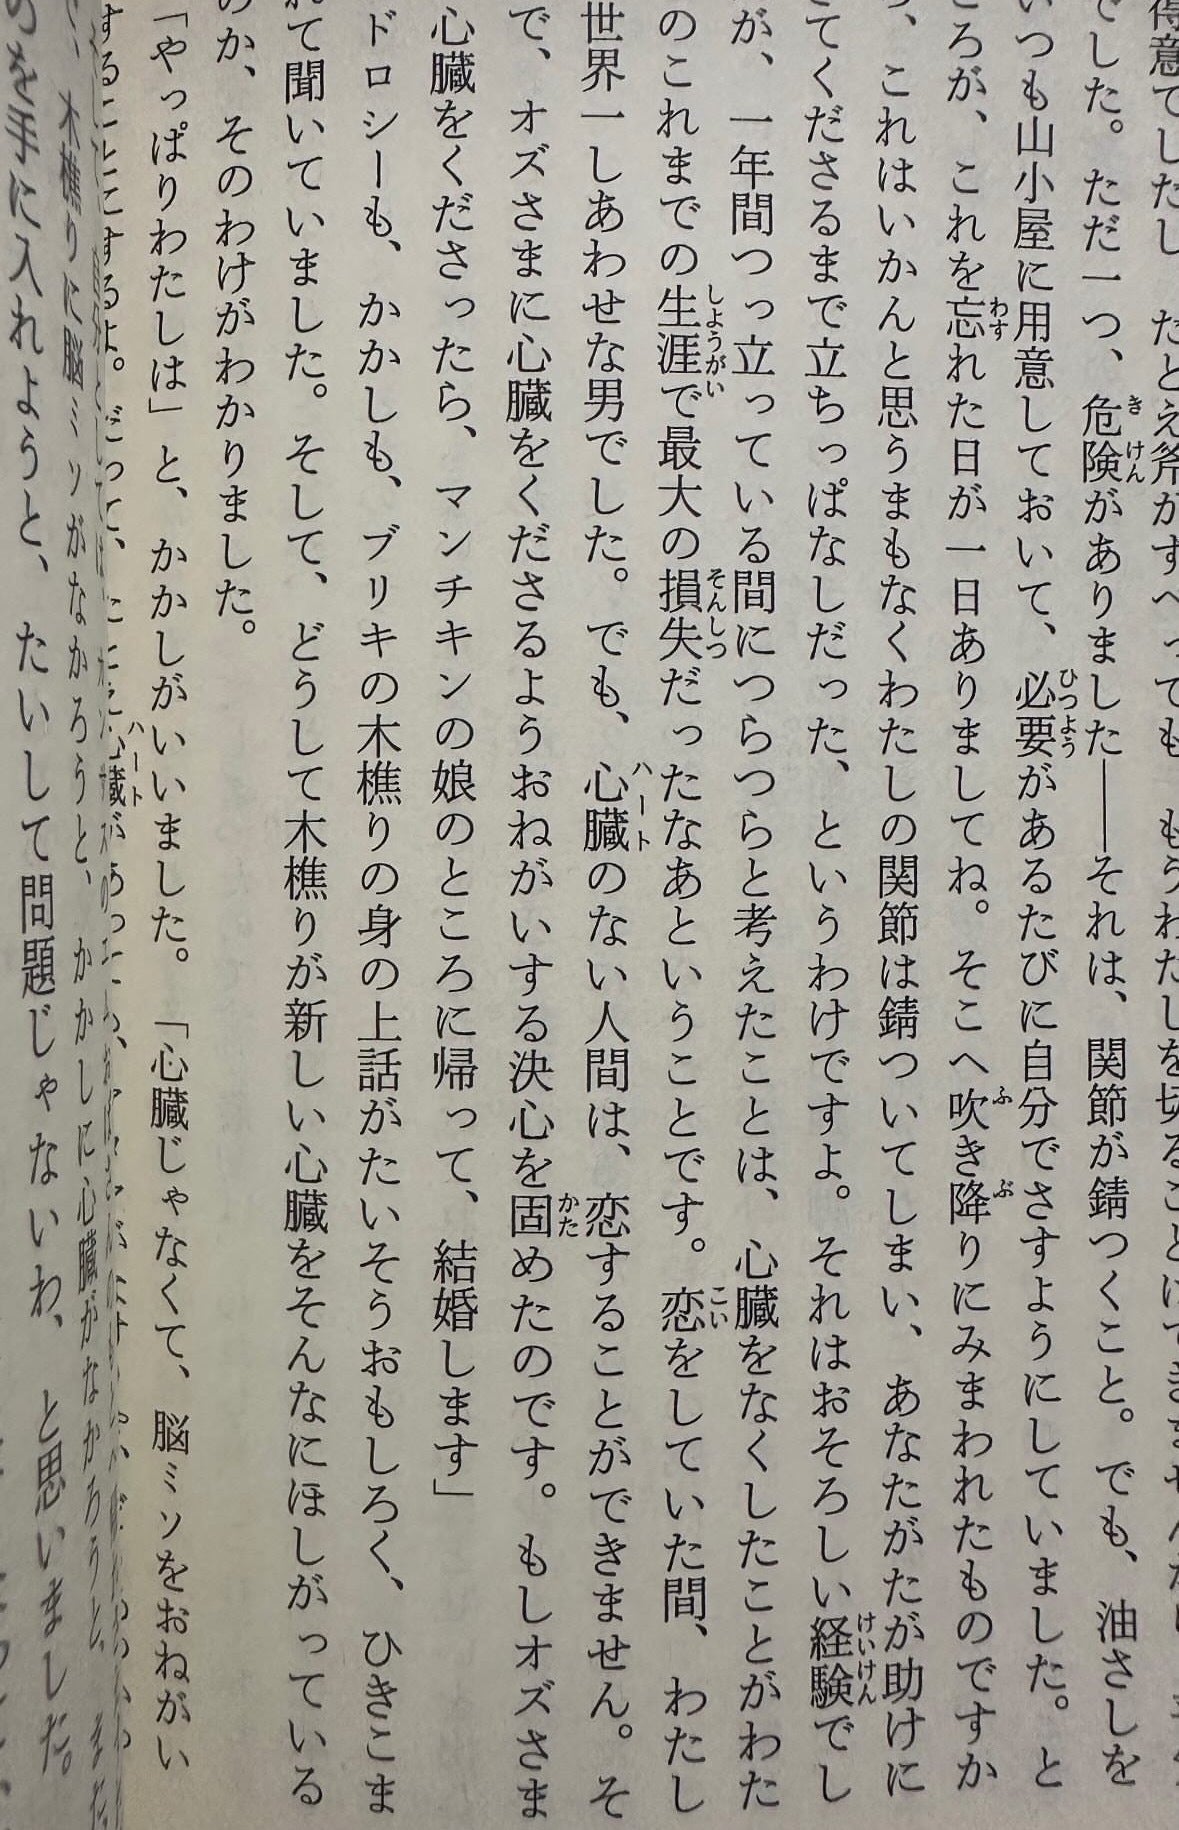 得意でしたし　たとえ斧がすべっても　もうわたしを切ることはできません
でした。ただ一つ、危険がありました――それは、関節が錆つくこと。でも、油さしを
いつも山小屋に用意しておいて、必要があるたびに自分でさすようにしていました。と
ころが、これを忘れた日が一日ありましてね。そこへ吹き降りにみまわれたものですか
ら、これはいかんと思うまもなくわたしの関節は錆ついてしまい、あなたがたが助けに
てくださるまで立ちっぱなしだった、というわけですよ。それはおそろしい経験でし
が、一年間つっ立っている間につらつらと考えたことは、心臓をなくしたことがわた
のこれまでの生涯で最大の損失だったなあということです。恋をしていた間、わたし
世界一しあわせな男でした。でも、心臓のない人間は、恋することができません。そ
で、オズさまに心臓をくださるようおねがいする決心を固めたのです。もしオズさま
心臓をくださったら、マンチキンの娘のところに帰って、結婚します」
ドロシーも、かかしも、ブリキの木樵りの身の上話がたいそうおもしろく、ひきこま
れて聞いていました。そして、どうして木樵りが新しい心臓をそんなにほしがっている
のか、そのわけがわかりました。
「やっぱりわたしは」と、かかしがいいました。「心臓じゃなくて、脳ミソをおねがい
することにするよ。だって、
木樵りに脳ミソがなかろうと、かかしに心臓がなかろうと、また
のを手に入れようと、たいして問題じゃないわ、と思いました。